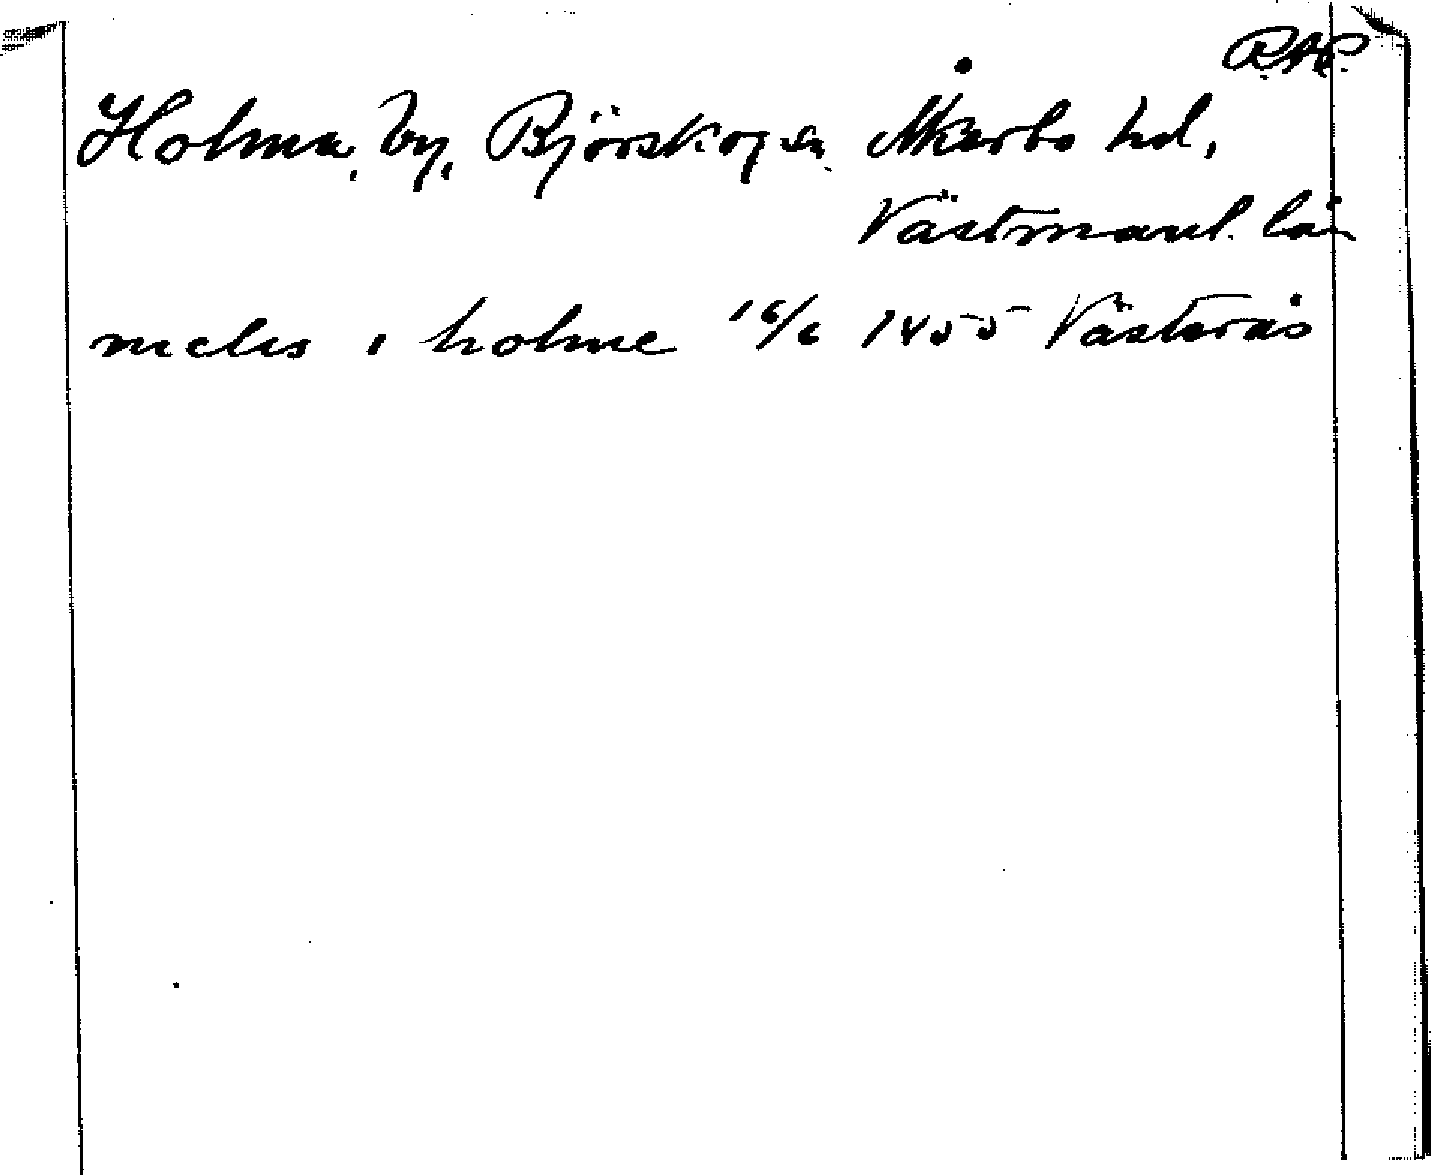 RAP
Holma, by, Björskog sn Åkerbo hd,
Västmanl. län
niclis i holme 16/6 1455 Västerås